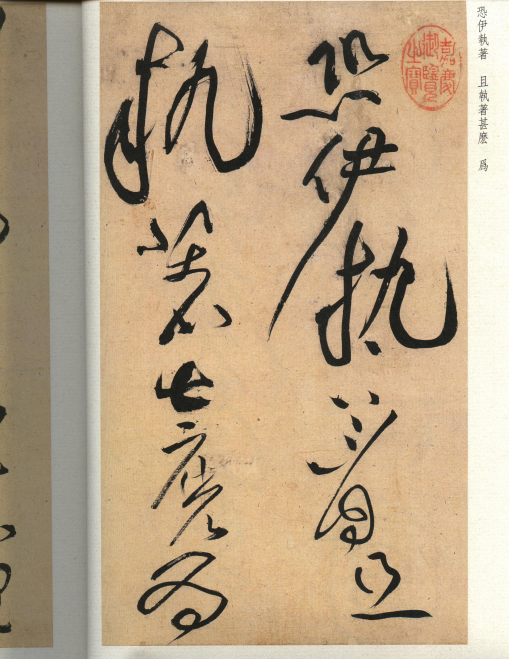 恐伊執著 且執著甚麽 爲
嘉慶御覽之寶
恐伊執著且
執著甚麽爲